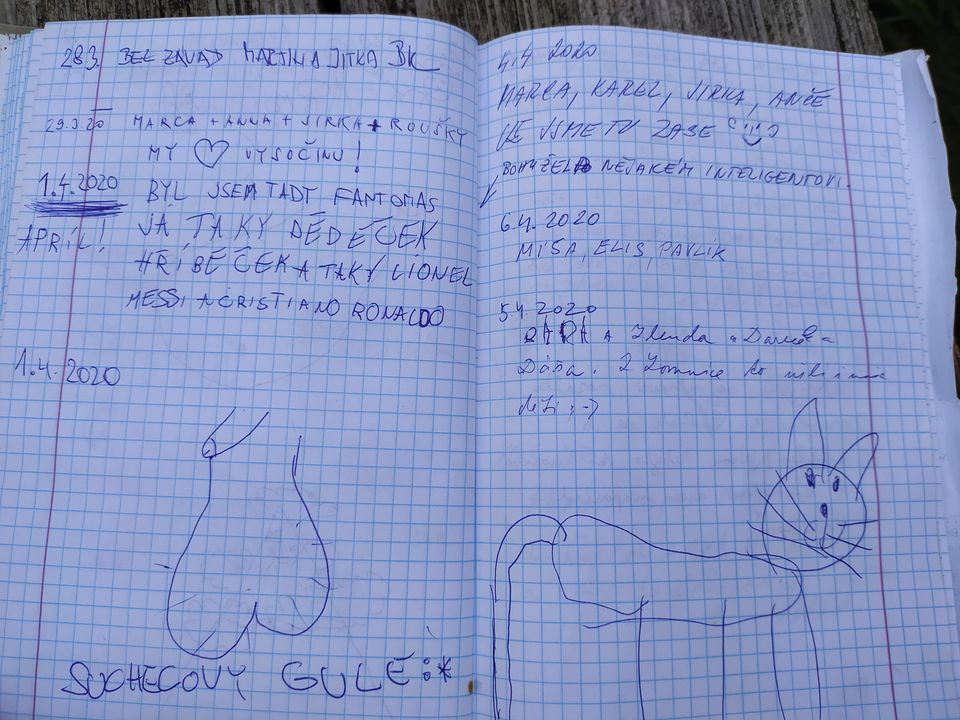 28.3. BEL ZÁVAD MARTINA JITKA BK
29.3.20 MARCA + ANNA + JIRKA + ROUŠKY
MY ♡ VYSOČINU!
1.4.2020 BYL JSEM TADY FANTOMAS
APRÍL! JÁ TAKY DĚDEČEK
HŘÍBĚČEK A TAKY LIONEL
MESSI A CRISTIANO RONALDO
1.4.2020
SUCHECOVY GULE :*
4.4 2020
MARCA, KAREL, JIRKA, ANČE
UŽ JSME TU ZASE
BOHUŽEL NĚJAKÉM INTELIGENTOVI.
6.4.2020
MISA, ELIS, PAVLIK
5.4.2020
BÁRA a a
Dáša. Z Lomnice to
děti ;-)